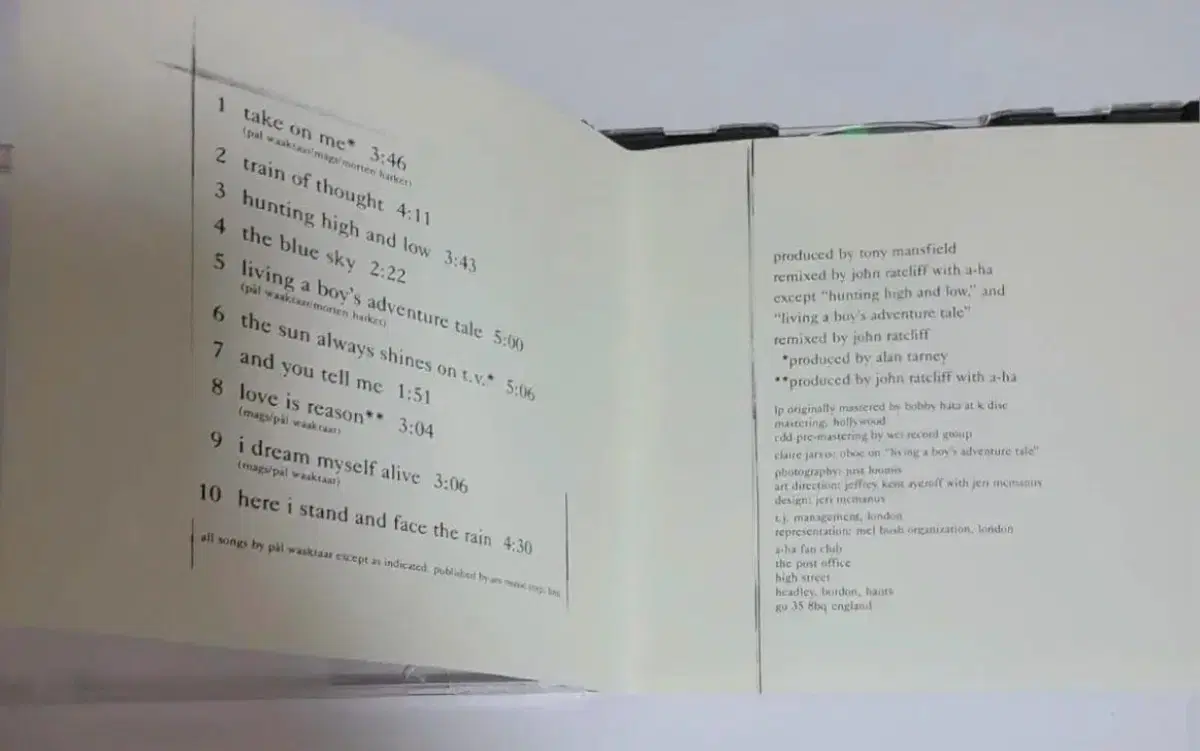 1 take on me* 3:46
(pål waaktaar/mags/morten harket)
2 train of thought 4:11
3 hunting high and low 3:43
4 the blue sky 2:22
5 living a boy's adventure tale 5:00
(pål waaktaar/morten harket)
6 the sun always shines on t.v.* 5:06
7 and you tell me 1:51
8 love is reason** 3:04
(mags/pål waaktaar)
9 i dream myself alive 3:06
(mags/pål waaktaar)
10 here i stand and face the rain 4:30
all songs by pål waaktaar except as indicated. published by atv music corp.
produced by tony mansfield
remixed by john ratcliff with a-ha
except "hunting high and low," and
"living a boy's adventure tale"
remixed by john ratcliff
*produced by alan tarney
**produced by john ratcliff with a-ha
lp originally mastered by bobby hata at k disc
mastering, hollywood
cdd pre-mastering by wci record group
claire jarvis: oboe on "living a boy's adventure tale"
photography: just loomis
art direction: jeffrey kent ayeroff with jeri mcmanus
design: jeri mcmanus
t.j. management, london
representation: mel bush organization, london
a-ha fan club
the post office
high street
headley, bordon, hants
gu 35 8bq england